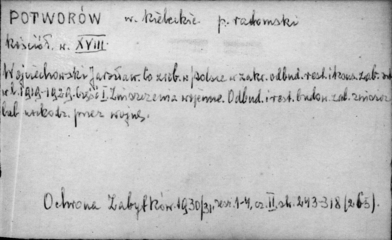 POTWORÓW w. kieleckie p. radomski
kościół. w. XVIII.
Wojciechowski Jarosław. Co zrob. w polsce w zakr. odbud. rest. i kons. zab.
w l. 1919-1929. Część I. Zniszczenia wojenne. Odbud. i rest. budow. zab. zniszcz.
lub uszkodz. przez wojnę.
Ochrona Zabytków. 1930/31, zesz. 1-4, cz. II, str. 243-318 (265).